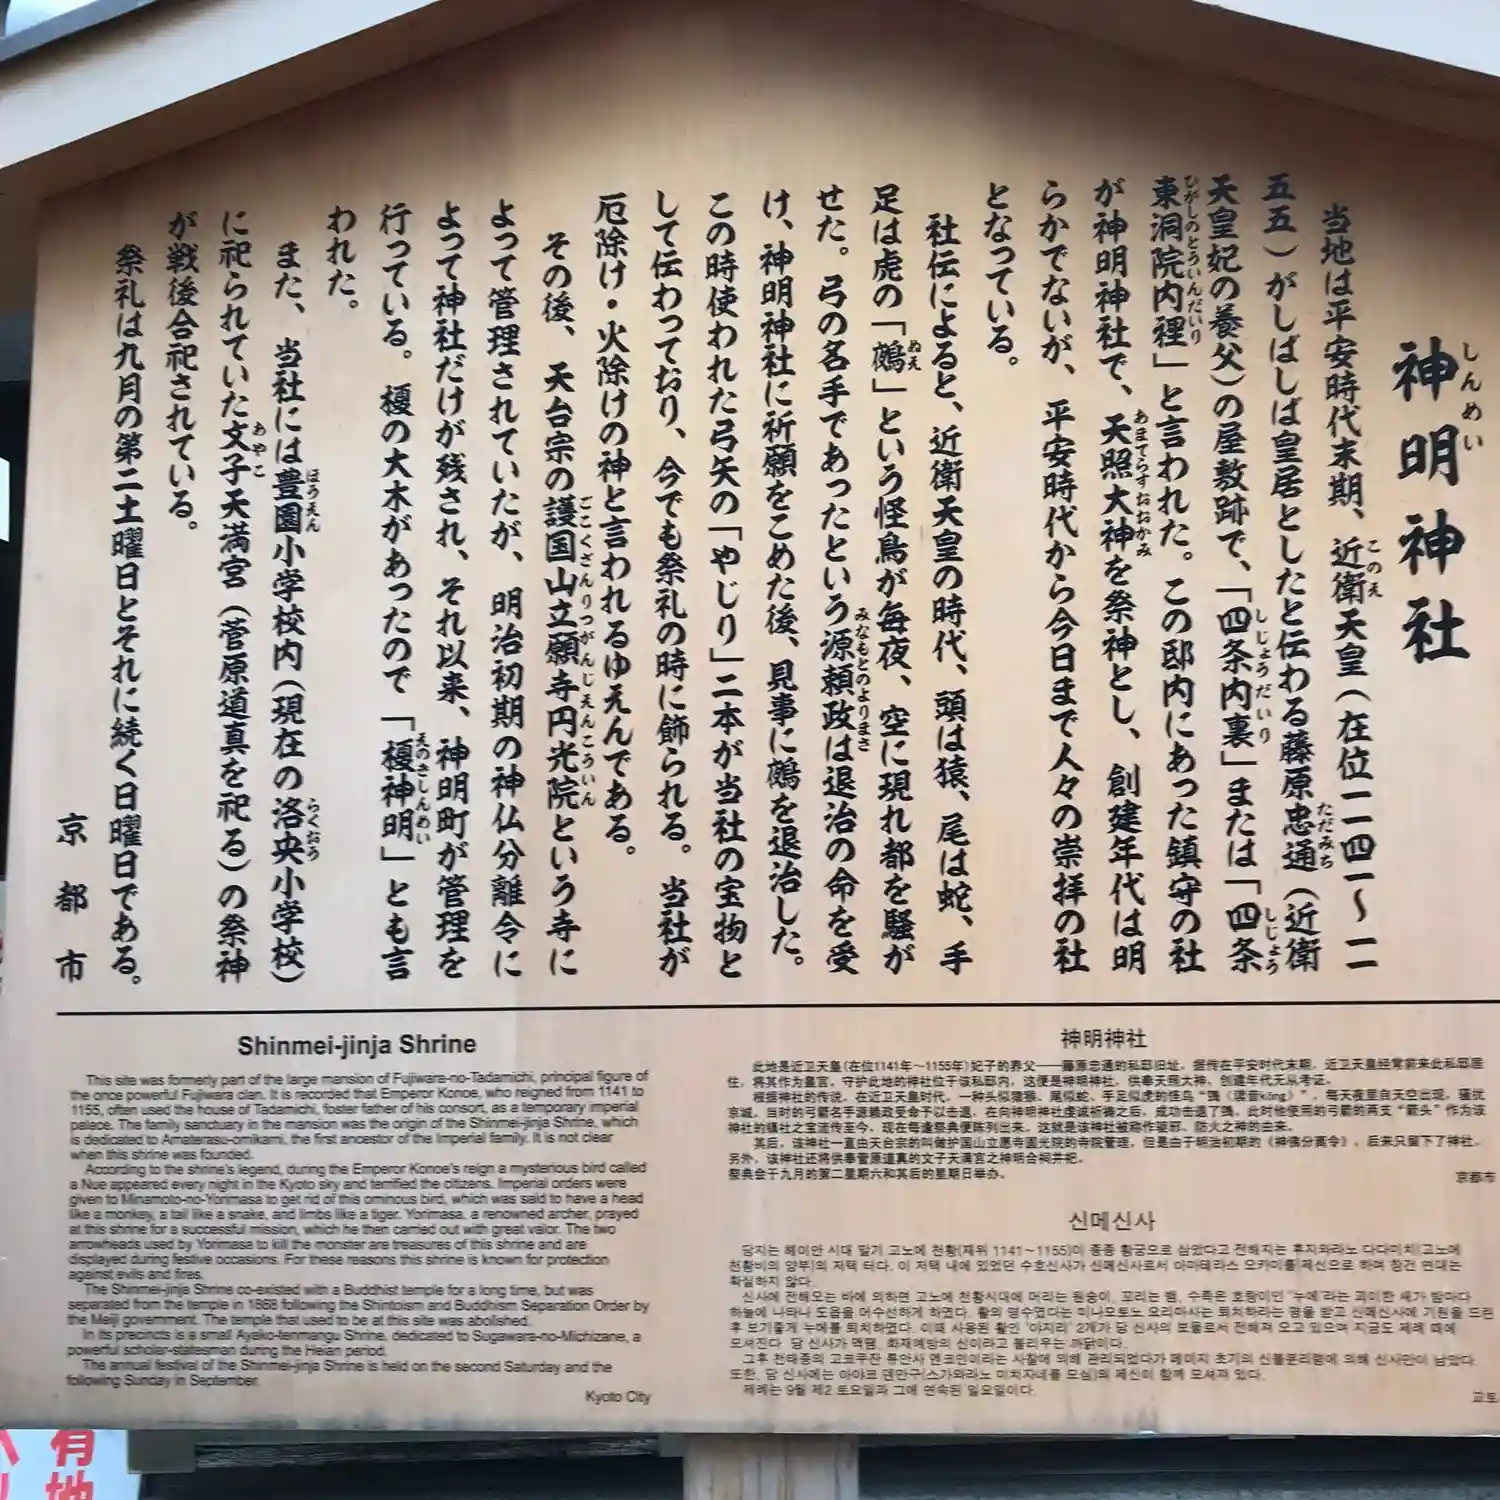 しんめい
神明神社
このえ
当地は平安時代末期、近衛天皇(在位一一四一〜一一
ただみち
五五)がしばしば皇居としたと伝わる藤原忠通(近衛
しじょうだいり しじょう
天皇妃の養父)の屋敷跡で、「四条内裏」または「四条
ひがしのとういんだいり
東洞院内裡」と言われた。この邸内にあった鎮守の社
あまてらすおおかみ
が神明神社で、天照大神を祭神とし、創建年代は明
らかでないが、平安時代から今日まで人々の崇拝の社
となっている。
社伝によると、近衛天皇の時代、頭は猿、尾は蛇、手
ぬえ
足は虎の「鵺」という怪鳥が毎夜、空に現れ都を騒が
みなもとのよりまさ
せた。弓の名手であったという源頼政は退治の命を受
け、神明神社に祈願をこめた後、見事に鵺を退治した。
この時使われた弓矢の「やじり」二本が当社の宝物と
して伝わっており、今でも祭礼の時に飾られる。当社が
厄除け・火除けの神と言われるゆえんである。
ごこくざんりつがんじえんこういん
その後、天台宗の護国山立願寺円光院という寺に
よって管理されていたが、明治初期の神仏分離令に
よって神社だけが残され、それ以来、神明町が管理を
えのきしんめい
行っている。榎の大木があったので「榎神明」とも言
われた。
ほうえん らくおう
また、当社には豊園小学校内(現在の洛央小学校)
あやこ
に祀られていた文子天満宮(菅原道真を祀る)の祭神
が戦後合祀されている。
祭礼は九月の第二土曜日とそれに続く日曜日である。
京都市
Shinmei-jinja Shrine
This site was formerly part of the large mansion of Fujiwara-no-Tadamichi, principal figure of
the once powerful Fujiwara clan. It is recorded that Emperor Konoe, who reigned from 1141 to
1155, often used the house of Tadamichi, foster father of his consort, as a temporary imperial
palace. The family sanctuary in the mansion was the origin of the Shinmei-jinja Shrine, which
is dedicated to Amaterasu-omikami, the first ancestor of the Imperial family. It is not clear
when this shrine was founded.
According to the shrine's legend, during the Emperor Konoe's reign a mysterious bird called
a Nue appeared every night in the Kyoto sky and terrified the citizens. Imperial orders were
given to Minamoto-no-Yorimasa to get rid of this ominous bird, which was said to have a head
like a monkey, a tail like a snake, and limbs like a tiger. Yorimasa, a renowned archer, prayed
at this shrine for a successful mission, which he then carried out with great valor. The two
arrowheads used by Yorimasa to kill the monster are treasures of this shrine and are
displayed during festive occasions. For these reasons this shrine is known for protection
against evils and fires.
The Shinmei-jinja Shrine co-existed with a Buddhist temple for a long time, but was
separated from the temple in 1868 following the Shintoism and Buddhism Separation Order by
the Meiji government. The temple that used to be at this site was abolished.
In its precincts is a small Ayako-tenmangu Shrine, dedicated to Sugawara-no-Michizane, a
powerful scholar-statesman during the Heian period.
The annual festival of the Shinmei-jinja Shrine is held on the second Saturday and the
following Sunday in September.
Kyoto City
神明神社
此地是近卫天皇(在位1141年～1155年)妃子的养父——藤原忠通的私邸旧址，据传在平安时代末期，近卫天皇经常前来此私邸居
住，将其作为皇宫，守护此地的神社位于该私邸内，这便是神明神社，供奉天照大神，创建年代无从考证。
根据神社的传说，在近卫天皇时代，一种头似猿猴、尾似蛇、手足似虎的怪鸟“鵺（读音kōng）”，每天夜里自天空出现，骚扰
京城，当时的弓箭名手源赖政受命予以击退，在向神明神社虔诚祈祷之后，成功击退了鵺，此时他使用的弓箭的两支“箭头”作为该
神社的镇社之宝流传至今，现在每逢祭典便陈列出来，这就是该神社被称作驱邪、防火之神的由来。
其后，该神社一直由天台宗的叫做护国山立愿寺圆光院的寺院管理，但是由于明治初期的《神佛分离令》，后来只留下了神社。
另外，该神社还将供奉菅原道真的文子天满宫之神明合祠并祀。
祭典会于九月的第二星期六和其后的星期日举办。
京都市
신메신사
당지는 헤이안 시대 말기 고노에 천황(재위 1141~1155)이 종종 황궁으로 삼았다고 전해지는 후지와라노 다다미치(고노에
천황비의 양부)의 저택 터다. 이 저택 내에 있었던 수호신사가 신메신사로서 아마테라스 오카미를 제신으로 하며 창건 연대는
확실하지 않다.
신사에 전해오는 바에 의하면 고노에 천황시대에 머리는 원숭이, 꼬리는 뱀, 수족은 호랑이인 “누에”라는 괴이한 새가 밤마다
하늘에 나타나 도읍을 어수선하게 하였다. 활의 명수였다는 미나모토노 요리마사는 퇴치하라는 명을 받고 신메신사에 기원을 드린
후 보기좋게 누에를 퇴치하였다. 이때 사용된 활인 ‘야지리’ 2개가 당 신사의 보물로서 전해져 오고 있으며 지금도 제례 때에
모셔진다. 당 신사가 액땜, 화재예방의 신이라고 불리우는 까닭이다.
그후 천태종의 고코쿠잔 류안사 엔코인이라는 사찰에 의해 관리되었다가 메이지 초기의 신불분리령에 의해 신사만이 남았다.
또한, 당 신사에는 아야코 덴만구(스가와라노 미치자네를 모심)의 제신이 함께 모셔져 있다.
제례는 9월 제2 토요일과 그에 연속된 일요일이다.
교토
有地